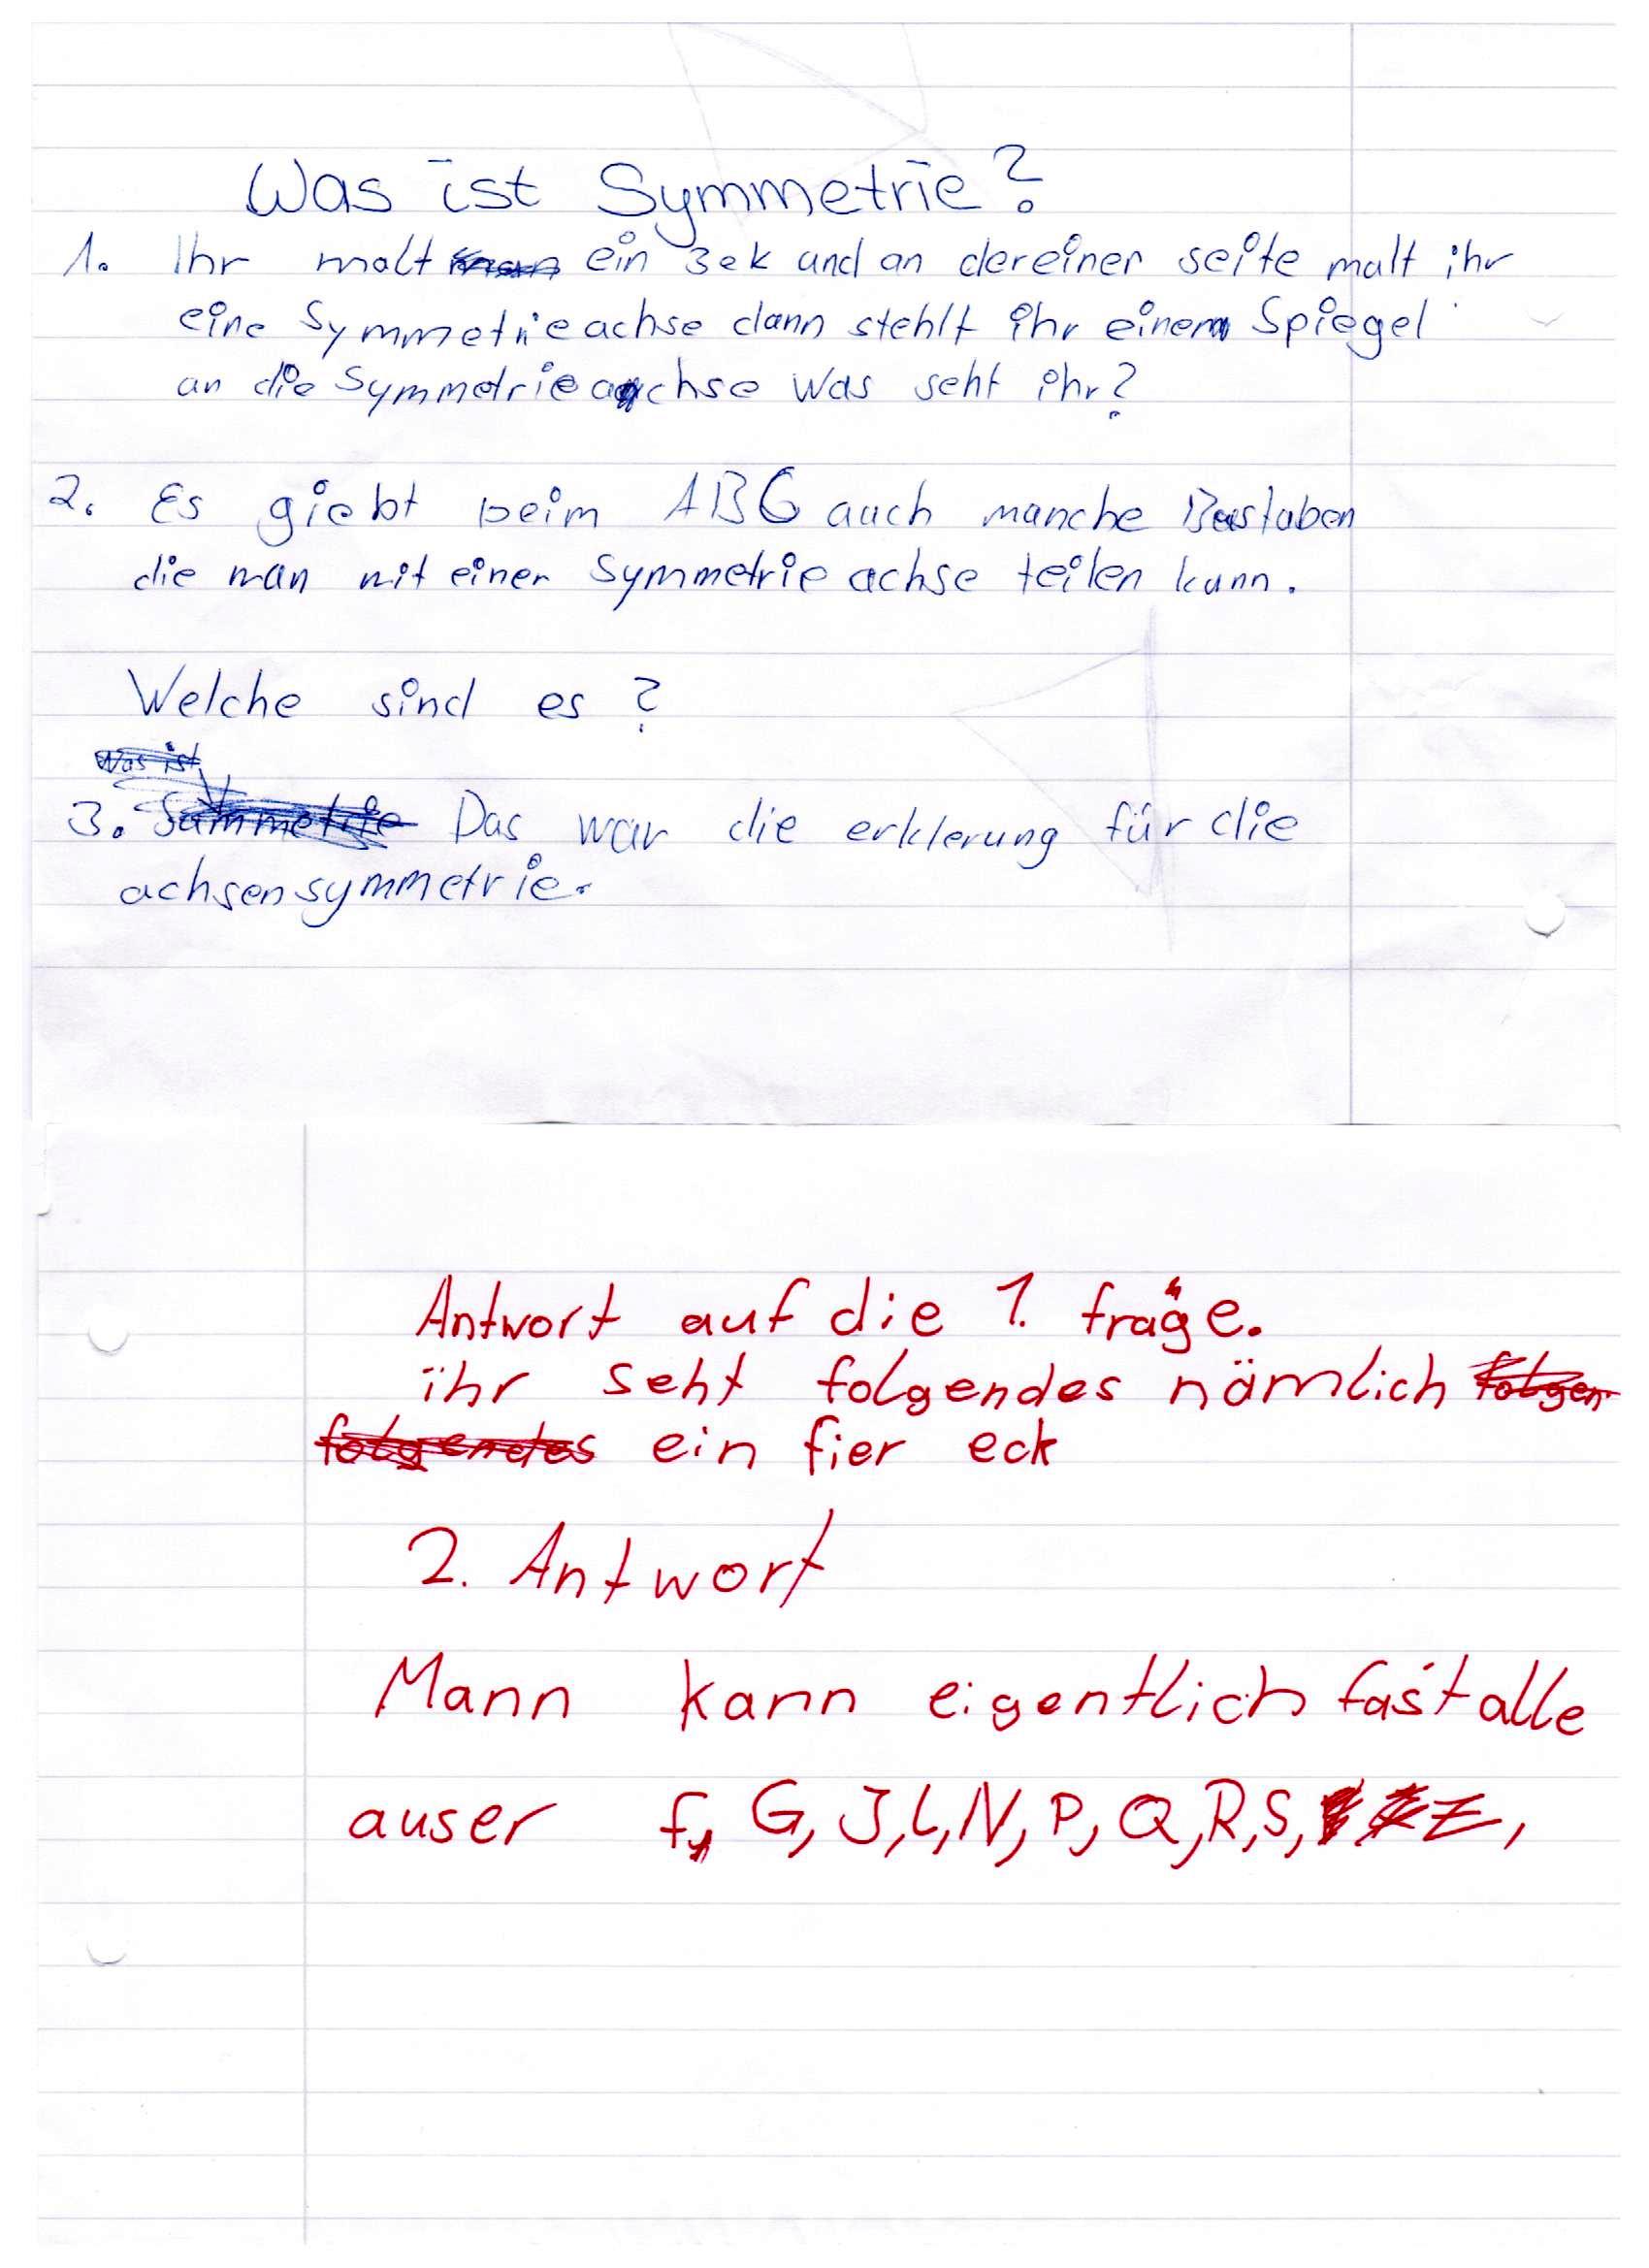 Was ist Symmetrie?
1. Ihr malt man ein 3ek und an dereiner seite malt ihr
eine Symmetrieachse dann stehlt ihr einen Spiegel
an die Symmetrieachse Was seht ihr?
2. Es giebt beim ABC auch manche Bustaben
die man mit einer Symmetrie achse teilen kann.
Welche sind es?
Was ist
3. Sammetrie Das war die erklerung für die
achsensymmetrie.
Antwort auf die 1. frage.
ihr seht folgendes nämlich folgen-
folgendes ein fier eck
2. Antwort
Mann kann eigentlich fast alle
auser f, G, J, L, N, P, Q, R, S, Z,